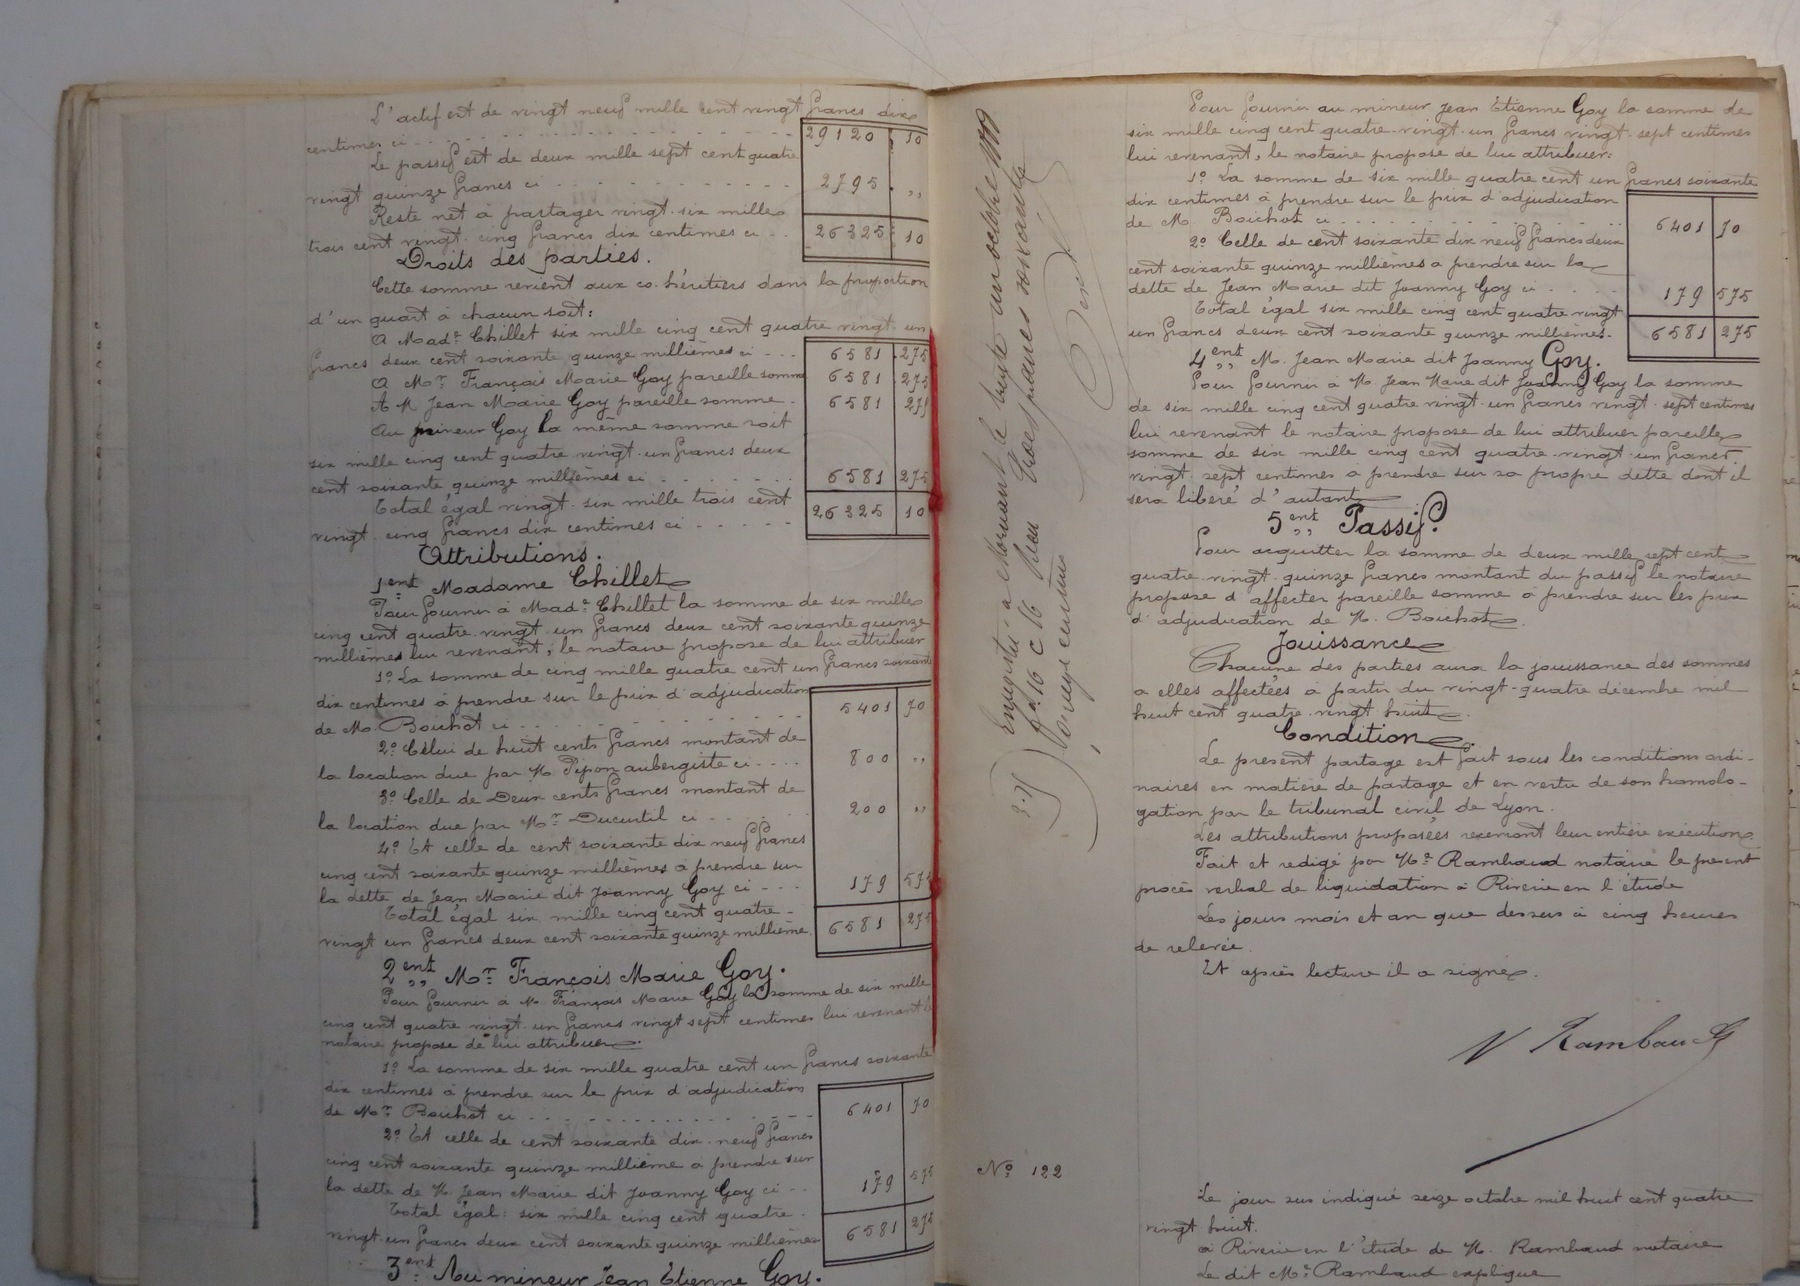 L'actif est de vingt neuf mille cent vingt francs dix
centimes ci 29120 10
Le passif est de deux mille sept cent quatre
vingt quinze francs ci 2795 ,,
Reste net à partager vingt-six mille
trois cent vingt-cinq francs dix centimes ci 26325 10
Droits des parties.
Cette somme revient aux co-héritiers dans la proportion
d'un quart à chacun soit:
A Made Chillet six mille cinq cent quatre vingt un
francs deux cent soixante quinze millièmes ci 6581 275
A Mr François Marie Goy pareille somme 6581 275
A M Jean Marie Goy pareille somme 6581 275
Au mineur Goy la même somme soit
six mille cinq cent quatre vingt-un francs deux
cent soixante quinze millièmes ci 6581 275
Total égal vingt-six mille trois cent
vingt-cinq francs dix centimes ci 26325 10
Attributions.
1ent Madame Chillet
Pour fournir à Made Chillet la somme de six mille
cinq cent quatre-vingt-un francs deux cent soixante quinze
millièmes lui revenant, le notaire propose de lui attribuer
1º La somme de cinq mille quatre cent un francs soixante
dix centimes à prendre sur le prix d'adjudication
de M. Boichot ci 5401 70
2º Celui de huit cents francs montant de
la location due par M. Pipon aubergiste ci 800 ,,
3º Celle de Deux cents francs montant de
la location due par Mr Ducurtil ci 200 ,,
4º Et celle de cent soixante dix neuf francs
cinq cent soixante quinze millièmes à prendre sur
la dette de Jean Marie dit Joanny Goy ci 179 575
Total égal six mille cinq cent quatre-
vingt un francs deux cent soixante quinze millième 6581 275
2ent Mr François Marie Goy.
Pour fournir à M. François Marie Goy la somme de six mille
cinq cent quatre vingt-un francs vingt sept centimes lui revenant le
notaire propose de lui attribuer.
1º La somme de six mille quatre cent un francs soixante
dix centimes à prendre sur le prix d'adjudication
de Mr Boichot ci 6401 70
2º Et celle de cent soixante dix-neuf francs
cinq cent soixante quinze millième à prendre sur
la dette de M. Jean Marie dit Joanny Goy ci 179 575
Total égal: six mille cinq cent quatre-
vingt-un francs deux cent soixante quinze millièmes 6581 275
3ent Au mineur Jean Etienne Goy.
Enregistré à Mornant le trente un octobre 1888
fo 16 C 16 Reçu trois francs soixante
quinze centimes
Pour fournir au mineur Jean Etienne Goy la somme de
six mille cinq cent quatre-vingt-un francs vingt-sept centimes
lui revenant, le notaire propose de lui attribuer:
1º La somme de six mille quatre cent un francs soixante
dix centimes à prendre sur le prix d'adjudication
de M. Boichot ci 6401 70
2º Celle de cent soixante dix neuf francs deux
cent soixante quinze millièmes à prendre sur la
dette de Jean Marie dit Joanny Goy ci 179 575
Total égal six mille cinq cent quatre vingt
un francs deux cent soixante quinze millièmes. 6581 275
4ent M. Jean Marie dit Joanny Goy.
Pour fournir à M. Jean Marie dit Joanny Goy la somme
de six mille cinq cent quatre vingt-un francs vingt-sept centimes
lui revenant le notaire propose de lui attribuer pareille
somme de six mille cinq cent quatre-vingt-un francs
vingt-sept centimes à prendre sur sa propre dette dont il
sera libéré d'autant
5ent Passif.
Pour acquitter la somme de deux mille sept cent
quatre-vingt-quinze francs montant du passif le notaire
propose d'affecter pareille somme à prendre sur les prix
d'adjudication de M. Boichot.
Jouissance
Chacune des parties aura la jouissance des sommes
a elles affectées à partir du vingt-quatre décembre mil
huit cent quatre-vingt huit.
Condition.
Le présent partage est fait sous les conditions ordi-
naires en matière de partage et en vertu de son homolo-
gation par le tribunal civil de Lyon.
Les attributions proposées recevront leur entière exécution
Fait et rédigé par Me Rambaud notaire le présent
procès verbal de liquidation à Riverie en l'étude
Les jours mois et an que dessus à cinq heures
de relevée.
Et après lecture il a signé.
N Rambaud
No 122
Le jour sus indiqué seize octobre mil huit cent quatre
vingt huit.
à Riverie en l'étude de M. Rambaud notaire
Le dit Me Rambaud explique